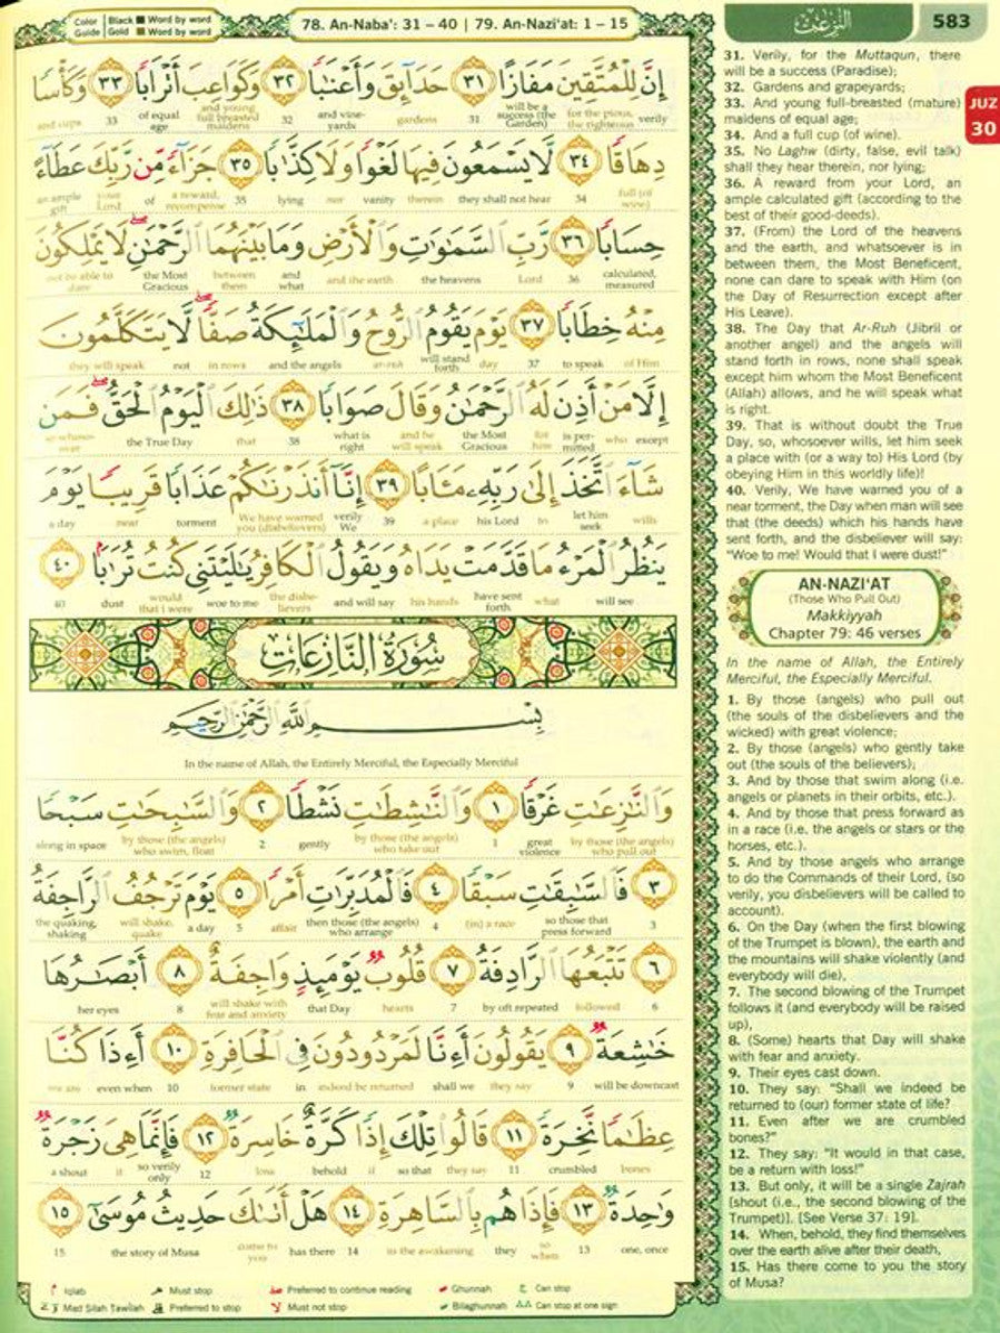 Color Guide
Black ■ Word by word
Gold ■ Word by word
78. An-Naba': 31 – 40 | 79. An-Nazi'at: 1 – 15
النّٰزعٰت
583
JUZ 30
إِنَّ لِلْمُتَّقِينَ مَفَازًا ٣١ حَدَآئِقَ وَأَعْنَٰبًا ٣٢ وَكَوَاعِبَ أَتْرَابًا ٣٣ وَكَأْسًا
verily for the pious, the righteous will be a success (the Garden) 31 gardens and vine-yards 32 and young full breasted maidens of equal age 33 and cups
دِهَاقًا ٣٤ لَا يَسْمَعُونَ فِيهَا لَغْوًا وَلَا كِذَّٰبًا ٣٥ جَزَآءً مِّن رَّبِّكَ عَطَآءً
full (of wine) 34 they shall not hear therein vanity nor lying 35 a reward, recompense of your Lord an ample gift
حِسَابًا ٣٦ رَّبِّ السَّمَٰوَٰتِ وَالْأَرْضِ وَمَا بَيْنَهُمَا الرَّحْمَٰنِ لَا يَمْلِكُونَ
calculated, measured 36 Lord the heavens and the earth and what between them the Most Gracious not be able to dare
مِنْهُ خِطَابًا ٣٧ يَوْمَ يَقُومُ الرُّوحُ وَالْمَلَٰٓئِكَةُ صَفًّا لَّا يَتَكَلَّمُونَ
of Him to speak 37 day will stand forth ar-ruh and the angels in rows not they will speak
إِلَّا مَنْ أَذِنَ لَهُ الرَّحْمَٰنُ وَقَالَ صَوَابًا ٣٨ ذَٰلِكَ الْيَوْمُ الْحَقُّ فَمَن
except who is per-mitted for him the Most Gracious and he will speak what is right 38 that the True Day so whoso-ever
شَآءَ اتَّخَذَ إِلَىٰ رَبِّهِۦ مَـَٔابًا ٣٩ إِنَّآ أَنذَرْنَٰكُمْ عَذَابًا قَرِيبًا يَوْمَ
wills let him seek to his Lord a place 39 verily We We have warned you (disbelievers) torment near a day
يَنظُرُ الْمَرْءُ مَا قَدَّمَتْ يَدَاهُ وَيَقُولُ الْكَافِرُ يَٰلَيْتَنِى كُنتُ تُرَٰبًا ٤٠
will see what have sent forth his hands and will say the disbe-lievers woe to me would that i were dust 40
سُورَةُ النَّازِعَاتِ
بِسْمِ اللَّهِ الرَّحْمَٰنِ الرَّحِيمِ
In the name of Allah, the Entirely Merciful, the Especially Merciful
وَالنَّٰزِعَٰتِ غَرْقًا ١ وَالنَّٰشِطَٰتِ نَشْطًا ٢ وَالسَّٰبِحَٰتِ سَبْحًا
by those (the angels) who pull out great violence 1 by those (the angels) who take out gently 2 by those (the angels) who swim, float along in space
٣ فَالسَّٰبِقَٰتِ سَبْقًا ٤ فَالْمُدَبِّرَٰتِ أَمْرًا ٥ يَوْمَ تَرْجُفُ الرَّاجِفَةُ
3 so those that press forward (in) a race 4 then those (the angels) who arrange affair 5 a day will shake, quake the quaking, shaking
٦ تَتْبَعُهَا الرَّادِفَةُ ٧ قُلُوبٌ يَوْمَئِذٍ وَاجِفَةٌ ٨ أَبْصَٰرُهَا
6 followed by oft repeated 7 hearts that Day will shake with fear and anxiety 8 her eyes
خَٰشِعَةٌ ٩ يَقُولُونَ أَءِنَّا لَمَرْدُودُونَ فِى الْحَافِرَةِ ١٠ أَءِذَا كُنَّا
will be downcast 9 they say shall we indeed be returned in former state 10 even when we are
عِظَٰمًا نَّخِرَةً ١١ قَالُوا تِلْكَ إِذًا كَرَّةٌ خَاسِرَةٌ ١٢ فَإِنَّمَا هِىَ زَجْرَةٌ
bones crumbled 11 they say so that if behold loss 12 so verily only it a shout
وَٰحِدَةٌ ١٣ فَإِذَا هُم بِالسَّاهِرَةِ ١٤ هَلْ أَتَىٰكَ حَدِيثُ مُوسَىٰٓ ١٥
one, once 13 so, when they in the awakening 14 has there come to you the story of Musa 15
Iqlab Must stop Preferred to continue reading Ghunnah Can stop
Mad Silah Tawilah Preferred to stop Must not stop Bilaghunnah Can stop at one sign
31. Verily, for the Muttaqun, there
will be a success (Paradise);
32. Gardens and grapeyards;
33. And young full-breasted (mature)
maidens of equal age;
34. And a full cup (of wine).
35. No Laghw (dirty, false, evil talk)
shall they hear therein, nor lying;
36. A reward from your Lord, an
ample calculated gift (according to the
best of their good-deeds).
37. (From) the Lord of the heavens
and the earth, and whatsoever is in
between them, the Most Beneficent,
none can dare to speak with Him (on
the Day of Resurrection except after
His Leave).
38. The Day that Ar-Ruh (Jibril or
another angel) and the angels will
stand forth in rows, none shall speak
except him whom the Most Beneficent
(Allah) allows, and he will speak what
is right.
39. That is without doubt the True
Day, so, whosoever wills, let him seek
a place with (or a way to) His Lord (by
obeying Him in this worldly life)!
40. Verily, We have warned you of a
near torment, the Day when man will see
that (the deeds) which his hands have
sent forth, and the disbeliever will say:
"Woe to me! Would that I were dust!"
AN-NAZI'AT
(Those Who Pull Out)
Makkiyyah
Chapter 79: 46 verses
In the name of Allah, the Entirely
Merciful, the Especially Merciful.
1. By those (angels) who pull out
(the souls of the disbelievers and the
wicked) with great violence;
2. By those (angels) who gently take
out (the souls of the believers);
3. And by those that swim along (i.e.
angels or planets in their orbits, etc.).
4. And by those that press forward as
in a race (i.e. the angels or stars or the
horses, etc.).
5. And by those angels who arrange
to do the Commands of their Lord, (so
verily, you disbelievers will be called to
account).
6. On the Day (when the first blowing
of the Trumpet is blown), the earth and
the mountains will shake violently (and
everybody will die),
7. The second blowing of the Trumpet
follows it (and everybody will be raised
up),
8. (Some) hearts that Day will shake
with fear and anxiety.
9. Their eyes cast down.
10. They say: "Shall we indeed be
returned to (our) former state of life?
11. Even after we are crumbled
bones?"
12. They say: "It would in that case,
be a return with loss!"
13. But only, it will be a single Zajrah
[shout (i.e., the second blowing of the
Trumpet)]. [See Verse 37: 19].
14. When, behold, they find themselves
over the earth alive after their death,
15. Has there come to you the story
of Musa?